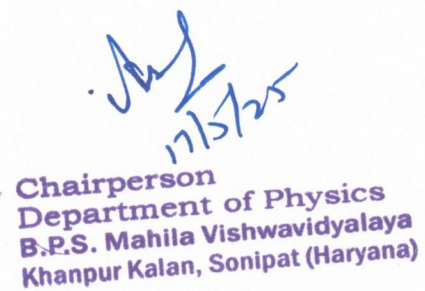 17/5/25
Chairperson
Department of Physics
B.P.S. Mahila Vishwavidyalaya
Khanpur Kalan, Sonipat (Haryana)